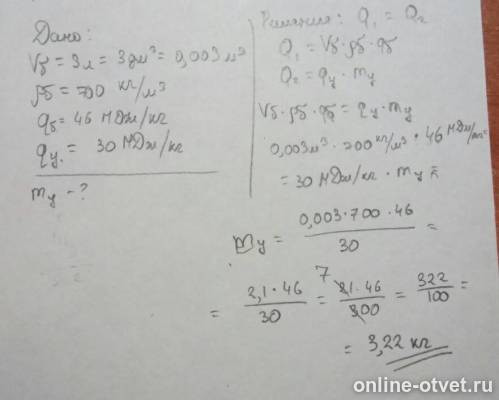 Дано:
Vб = 3л = 3дм³ = 0,003 м³
ρб = 700 кг/м³
qб = 46 МДж/кг
qу. = 30 МДж/кг
mу - ?
Решение: Q₁ = Q₂
Q₁ = Vб · ρб · qб
Q₂ = qу · mу
Vб · ρб · qб = qу · mу
0,003м³ · 700 кг/м³ · 46 МДж/кг =
= 30 МДж/кг · mу
mу = 0,003·700·46 / 30 =
= 2,1·46 / 30 = 7 21·46 / 300 = 322 / 100 =
= 3,22 кг
online-otvet.ru